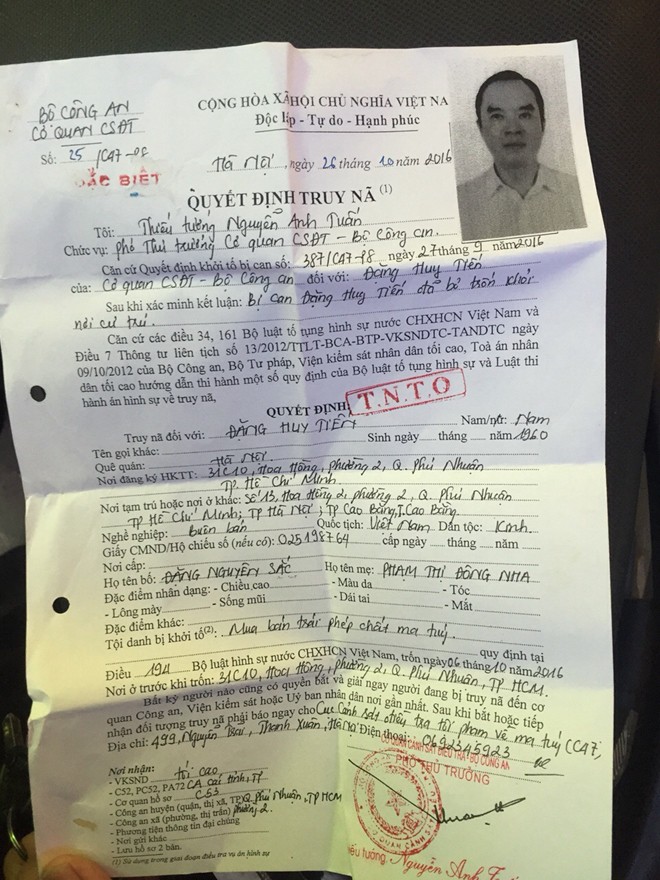 BỘ CÔNG AN
CƠ QUAN CSĐT
Số: 25 /C47-P8
ĐẶC BIỆT
CỘNG HÒA XÃ HỘI CHỦ NGHĨA VIỆT NA
Độc lập - Tự do - Hạnh phúc
Hà Nội, ngày 26 tháng 10 năm 2016
QUYẾT ĐỊNH TRUY NÃ (1)
Tôi: Thiếu tướng Nguyễn Anh Tuấn
Chức vụ: Phó Thủ trưởng Cơ quan CSĐT - Bộ Công an.
Căn cứ Quyết định khởi tố bị can số: 387/C47-P8 ngày 27 tháng 9 năm 2016
của: Cơ quan CSĐT - Bộ Công an đối với: Đặng Huy Tiến
Sau khi xác minh kết luận: Bị can Đặng Huy Tiến đã bỏ trốn khỏi
nơi cư trú.
Căn cứ các điều 34, 161 Bộ luật tố tụng hình sự nước CHXHCN Việt Nam và
Điều 7 Thông tư liên tịch số 13/2012/TTLT-BCA-BTP-VKSNDTC-TANDTC ngày
09/10/2012 của Bộ Công an, Bộ Tư pháp, Viện kiểm sát nhân dân tối cao, Toà án nhân
dân tối cao hướng dẫn thi hành một số quy định của Bộ luật tố tụng hình sự và Luật thi
hành án hình sự về truy nã,
QUYẾT ĐỊNH:
T.N.T.O
Truy nã đối với: ĐẶNG HUY TIẾN Nam/nữ: Nam
Tên gọi khác: Sinh ngày tháng năm 1960
Quê quán: Hà Nội.
Nơi đăng ký HKTT: 31C10, Hoa Hồng, phường 2, Q. Phú Nhuận
TP. Hồ Chí Minh.
Nơi tạm trú hoặc nơi ở khác: Số 13, Hoa Hồng 2, phường 2, Q. Phú Nhuận
TP Hồ Chí Minh; TP Hà Nội; TP Cao Bằng, T. Cao Bằng.
Nghề nghiệp: Buôn bán Quốc tịch: Việt Nam Dân tộc: Kinh.
Giấy CMND/Hộ chiếu số (nếu có): 025198764 cấp ngày tháng năm
Nơi cấp:
Họ tên bố: ĐẶNG NGUYÊN SẮC Họ tên mẹ: PHẠM THỊ ĐÔNG NHA
Đặc điểm nhân dạng: - Chiều cao - Màu da - Tóc
- Lông mày - Sống mũi - Dái tai - Mắt
Đặc điểm khác:
Tội danh bị khởi tố(2): Mua bán trái phép chất ma tuý. quy định tại
Điều 194 Bộ luật hình sự nước CHXHCN Việt Nam, trốn ngày 06 tháng 10 năm 2016
Nơi ở trước khi trốn: 31C10, Hoa Hồng, phường 2, Q. Phú Nhuận, TP HCM.
Bất kỳ người nào cũng có quyền bắt và giải ngay người đang bị truy nã đến cơ
quan Công an, Viện kiểm sát hoặc Uỷ ban nhân dân nơi gần nhất. Sau khi bắt hoặc tiếp
nhận đối tượng truy nã phải báo ngay cho Cục Cảnh sát điều tra tội phạm về ma tuý (C47,
Địa chỉ: 499, Nguyễn Trãi, Thanh Xuân, Hà Nội Điện thoại: 0692345923
CƠ QUAN CẢNH SÁT ĐIỀU TRA - BỘ CÔNG AN
PHÓ THỦ TRƯỞNG
Nơi nhận:
- VKSND tối cao
- C52, PC52, PA72 CA các tỉnh, TP
- Cơ quan hồ sơ C53
- Công an huyện (quận, thị xã, TP) Q. Phú Nhuận, TP HCM
- Công an xã (phường, thị trấn) phường 2.
- Phương tiện thông tin đại chúng
- Nơi gửi khác
- Lưu hồ sơ 2 bản.
(1) Sử dụng trong giai đoạn điều tra vụ án hình sự
iếu tướng: Nguyễn Anh